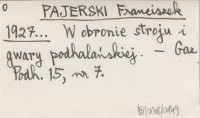 0
PAJERSKI Franciszek
1927... W obronie stroju i
gwary podhalańskiej. – Gaz.
Podh. 15, nr 7.